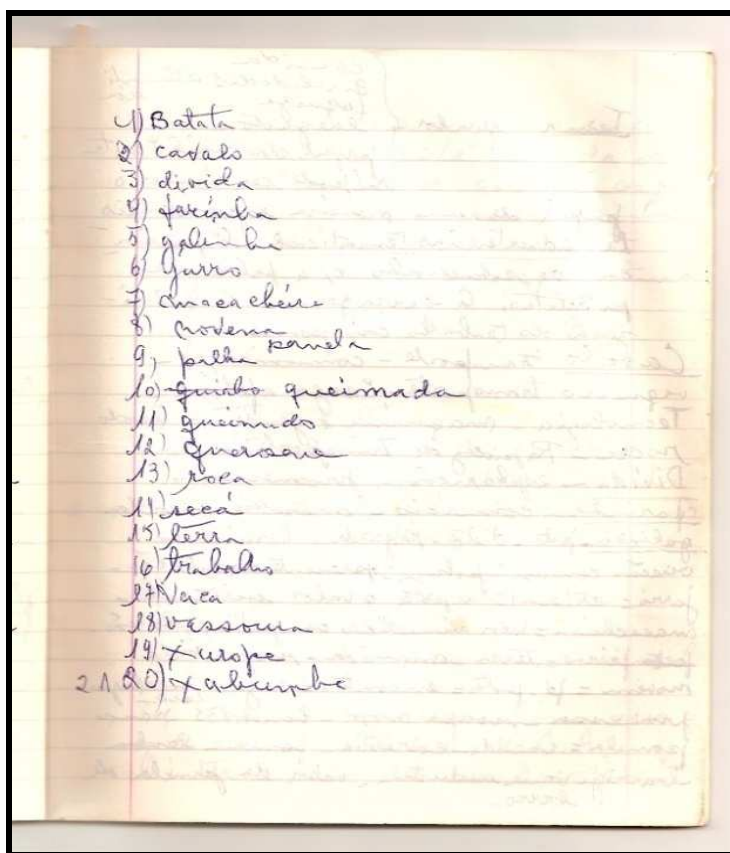 1) Batata
2) cavalo
3) divida
4) farinha
5) galinha
6) jarro
7) macacheira
8) novena
panela
9, palha
10) quiabo queimada
11) queimado
12) querosene
13) roça
14) seca
15) terra
16) trabalho
17 Vaca
18) vassoura
19) xurope
21. 20) xabumba